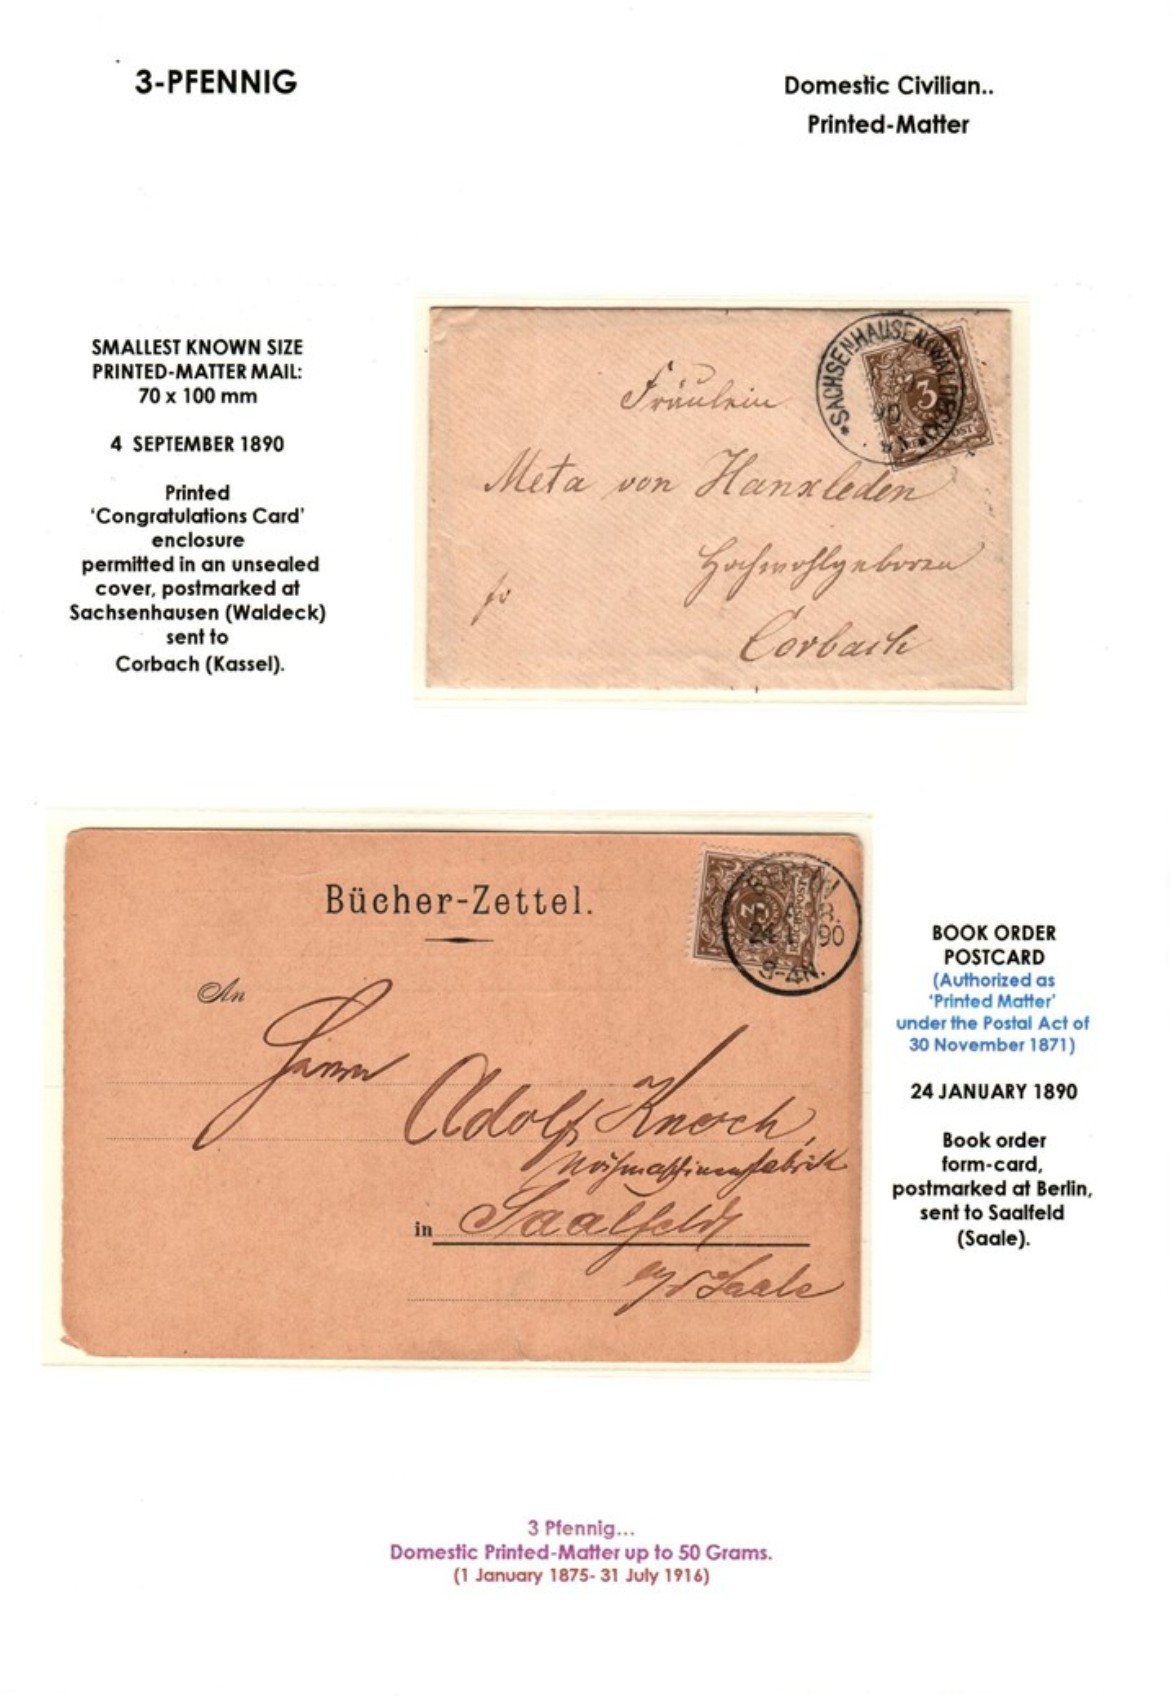 3-PFENNIG
Domestic Civilian..
Printed-Matter
SMALLEST KNOWN SIZE
PRINTED-MATTER MAIL:
70 x 100 mm
4 SEPTEMBER 1890
Printed
'Congratulations Card'
enclosure
permitted in an unsealed
cover, postmarked at
Sachsenhausen (Waldeck)
sent to
Corbach (Kassel).
*SACHSENHAUSEN(WALDECK)*
90
3
Fräulein
Meta von Hanxleden
Hochwohlgeboren
fr
Corbach
Bücher-Zettel.
An
Herrn
Adolf Knoch,
Nähmaschinenfabrik
in Saalfeld
a/d Saale
3
REICHSPOST
24 1 90
3-4N.
BOOK ORDER
POSTCARD
(Authorized as
'Printed Matter'
under the Postal Act of
30 November 1871)
24 JANUARY 1890
Book order
form-card,
postmarked at Berlin,
sent to Saalfeld
(Saale).
3 Pfennig...
Domestic Printed-Matter up to 50 Grams.
(1 January 1875- 31 July 1916)